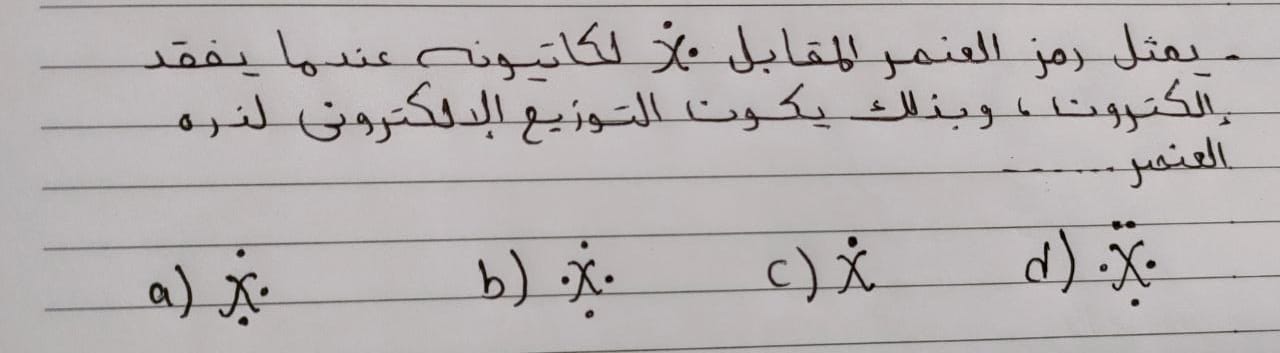 - يمثل رمز العنصر المقابل Ẋ· لكاتيون عندما يفقد
إلكترون ، وبذلك يكون التوزيع الإلكترونى لذره
العنصر ......
a) Ẋ̣· b) ·Ẋ̣· c) Ẋ d) ·Ẍ̣·